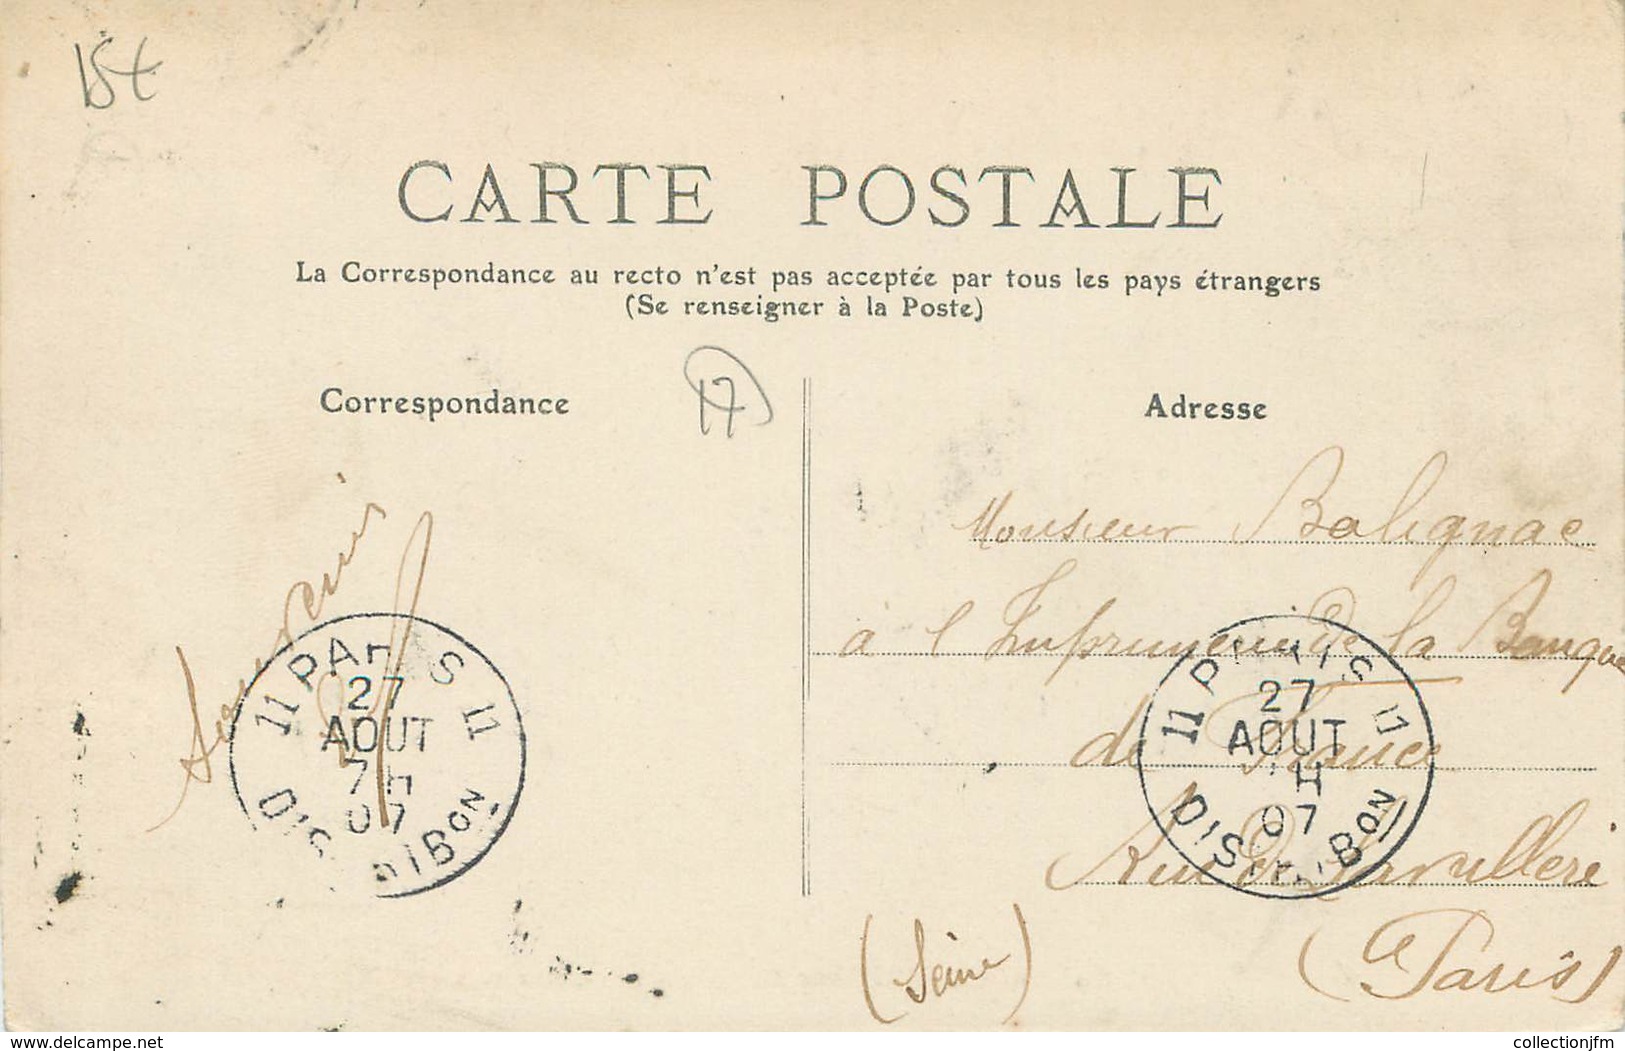 15€
CARTE POSTALE
La Correspondance au recto n'est pas acceptée par tous les pays étrangers
(Se renseigner à la Poste)
Correspondance
17
Adresse
Souvenir
Monsieur Balignac
a l Imprimerie de la Banque
de France
Rue de
(Seine)
(Paris)
11 PARIS 11
27
AOUT
7H
07
DISTRIBON
11 PARIS 11
27
AOUT
H
07
DISTRIBON
delcampe.net
collectionjfm